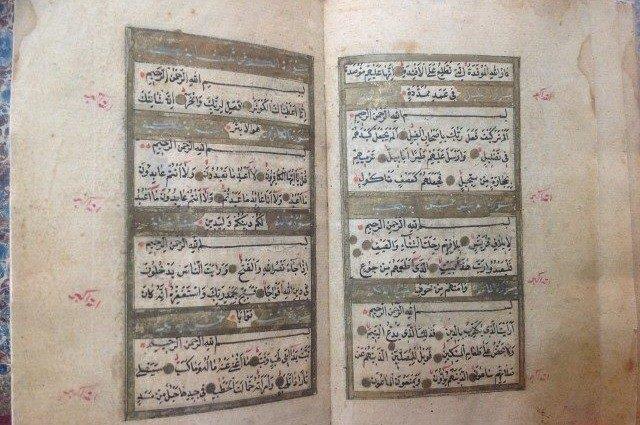 نار الله الموقدة التي تطلع على الافئدة انها عليهم مؤصدة
في عمد ممددة
الله اكبر
بسم الله الرحمن الرحيم
الم تر كيف فعل ربك باصحاب الفيل الم يجعل كيدهم
في تضليل وارسل عليهم طيرا ابابيل ترميهم
بحجارة من سجيل فجعلهم كعصف ماكول
الله اكبر
بسم الله الرحمن الرحيم
لايلاف قريش ايلافهم رحلة الشتاء والصيف
فليعبدوا رب هذا البيت الذي اطعمهم من جوع
وامنهم من خوف
الله اكبر
بسم الله الرحمن الرحيم
ارايت الذي يكذب بالدين فذلك الذي يدع اليتيم
ولا يحض على طعام المسكين فويل للمصلين الذين هم عن
صلاتهم ساهون الذين هم يراؤن ويمنعون الماعون
الله اكبر
بسم الله الرحمن الرحيم
انا اعطيناك الكوثر فصل لربك وانحر ان شانئك
هو الابتر
الله اكبر
بسم الله الرحمن الرحيم
قل يا ايها الكافرون لا اعبد ما تعبدون ولا انتم عابدون
ما اعبد ولا انا عابد ما عبدتم ولا انتم عابدون ما اعبد
لكم دينكم ولي دين
الله اكبر
بسم الله الرحمن الرحيم
اذا جاء نصر الله والفتح ورايت الناس يدخلون
في دين الله افواجا فسبح بحمد ربك واستغفره انه كان
توابا
الله اكبر
بسم الله الرحمن الرحيم
تبت يدا ابي لهب وتب ما اغنى عنه ماله وما كسب سيصلى
نارا ذات لهب وامراته حمالة الحطب في جيدها حبل من مسد
الله اكبر